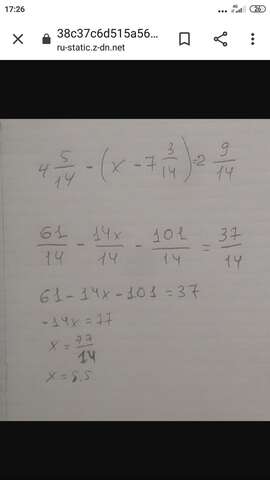 17:26
26
38c37c6d515a56...
ru-static.z-dn.net
4 5/14 - (x - 7 3/14) = 2 9/14
61/14 - 14x/14 - 101/14 = 37/14
61 - 14x - 101 = 37
-14x = 77
x = 77/14
x = 5.5